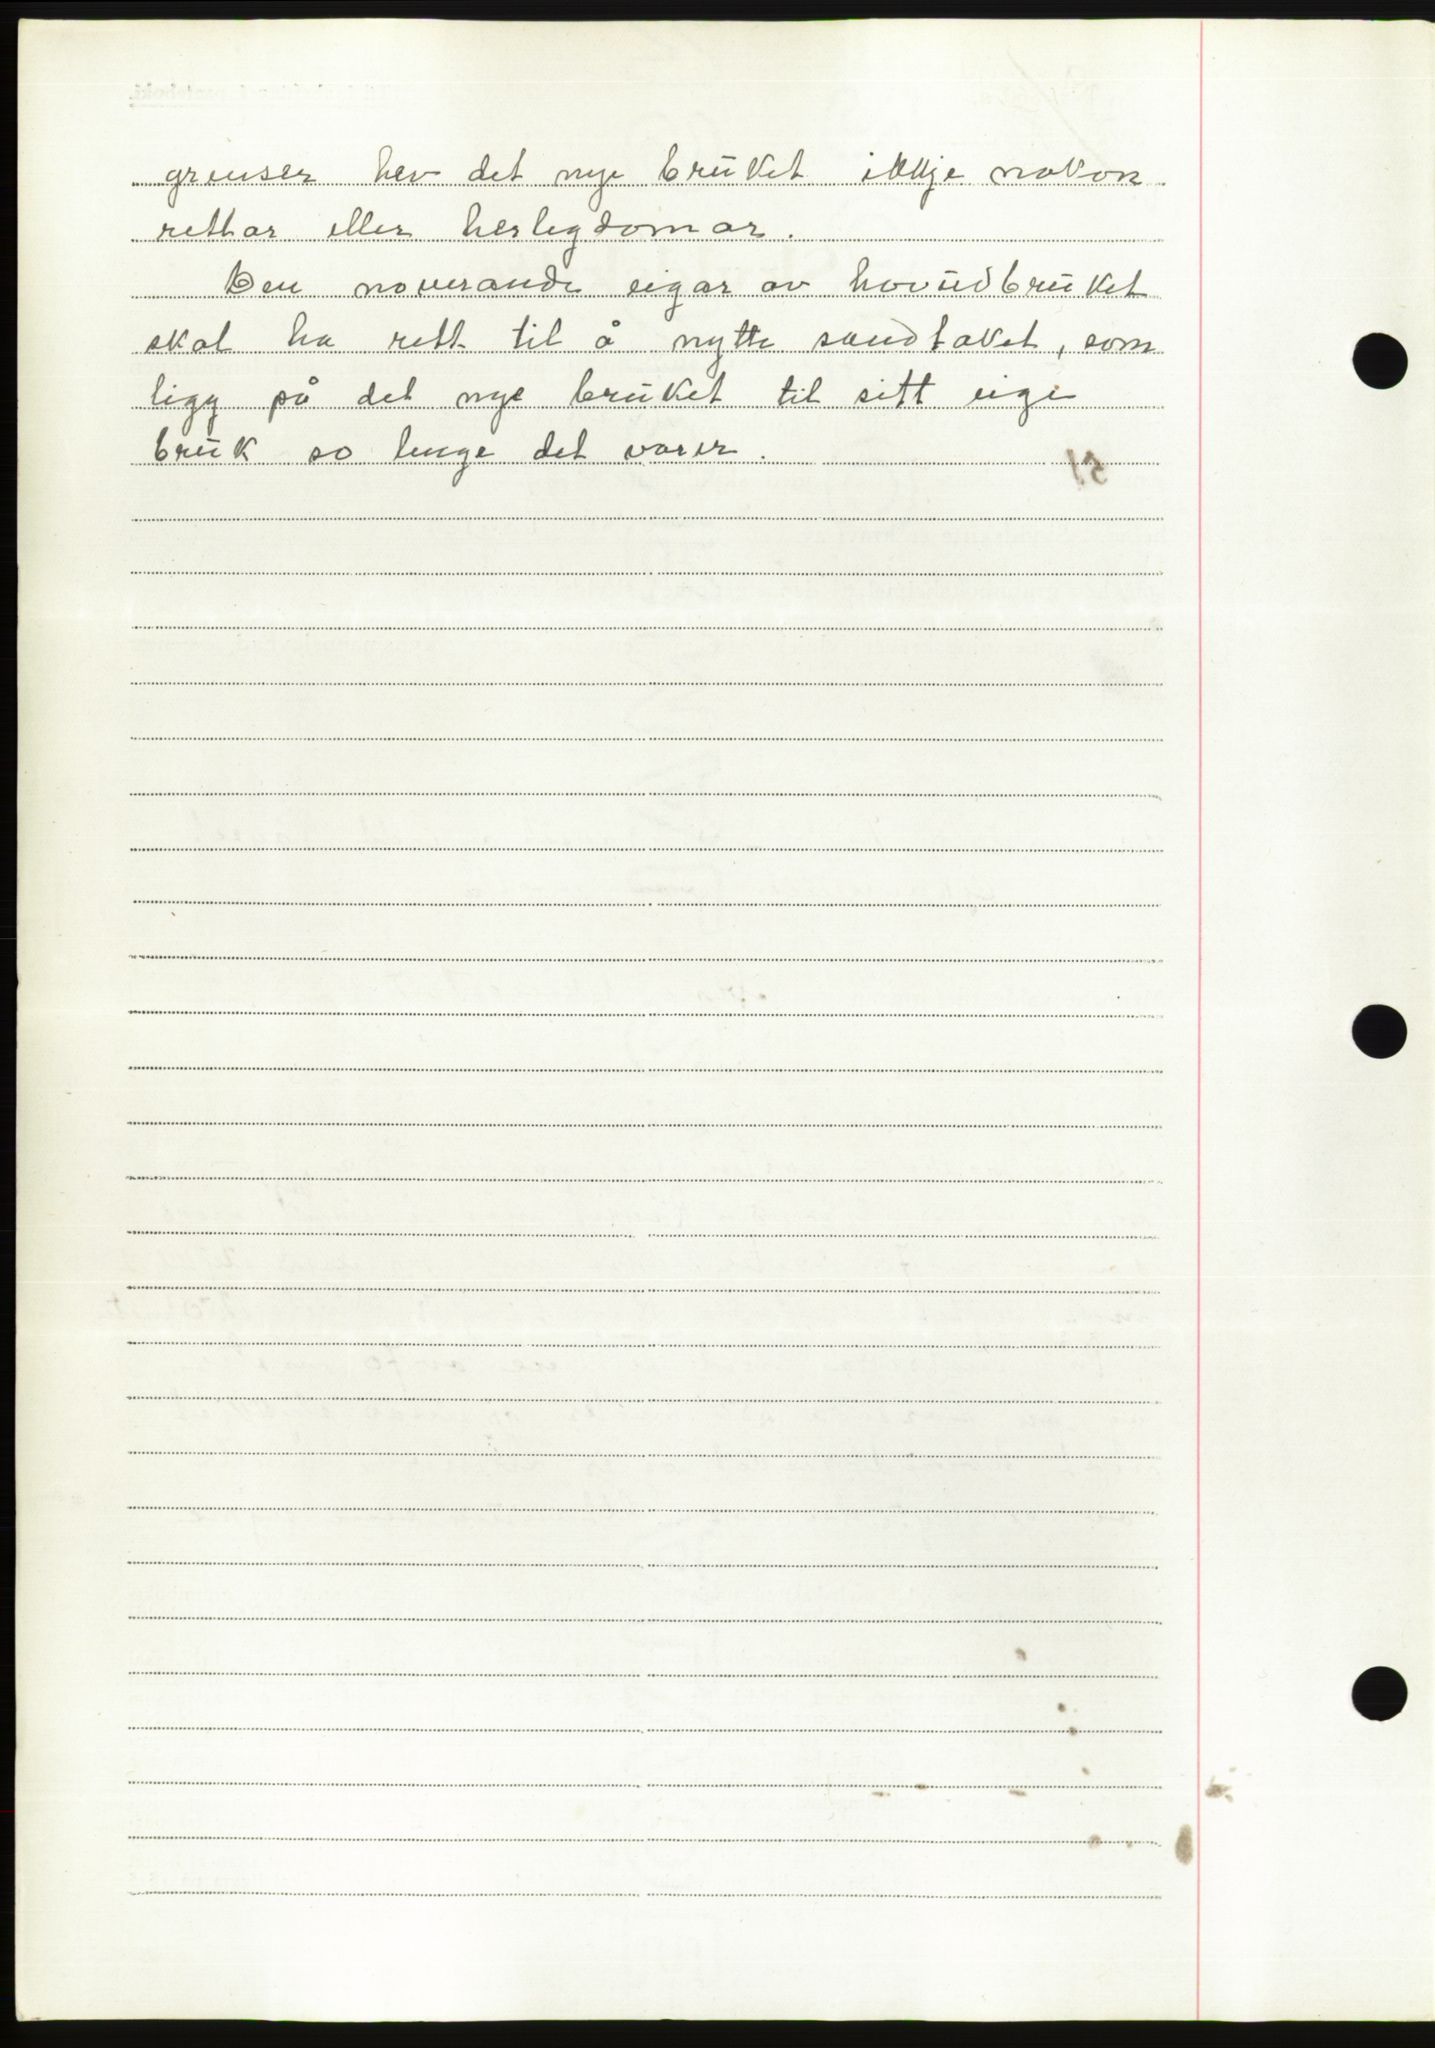 grenser hev det nye brúket ikkje nokon
rettar eller herlegdomar.
Den noverande eigar av hovúdbrúket
skal ha rett til å nytte sandtaket, som
ligg på det nye brúket til sitt eige
brúk so lenge det varer.